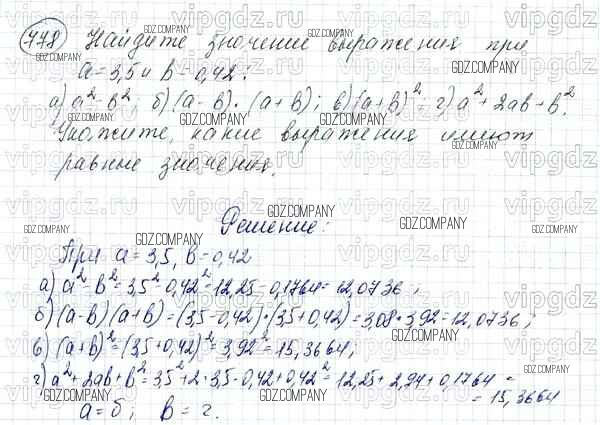 778 Найдите значение выражения при
a = 3,5 и b = 0,42:
а) a² - b²; б) (a - b) · (a + b); в) (a + b)²; г) a² + 2ab + b².
Укажите, какие выражения имеют
равные значения.
Решение:
При a = 3,5, b = 0,42
а) a² - b² = 3,5² - 0,42² = 12,25 - 0,1764 = 12,0736;
б) (a - b)(a + b) = (3,5 - 0,42) · (3,5 + 0,42) = 3,08 · 3,92 = 12,0736;
в) (a + b)² = (3,5 + 0,42)² = 3,92² = 15,3664;
г) a² + 2ab + b² = 3,5² + 2 · 3,5 · 0,42 + 0,42² = 12,25 + 2,94 + 0,1764 =
= 15,3664
а = б; в = г.
vipgdz.ru
GDZ.COMPANY